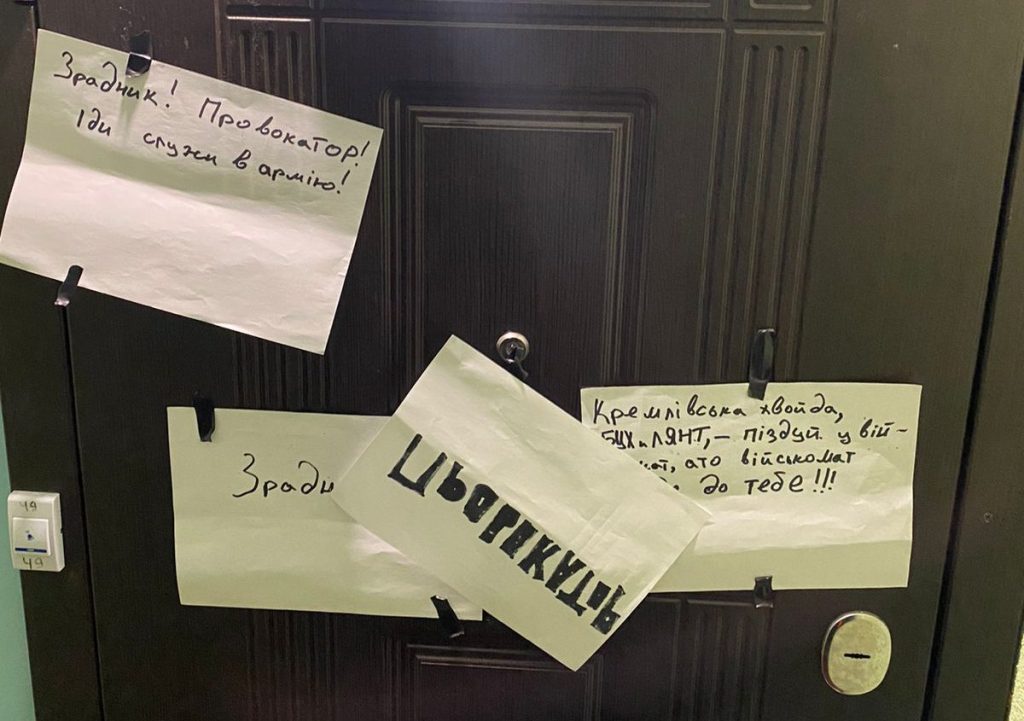 Зрадник! Провокатор!
Іди служи в армію!
Зрадн
Провокатор
Кремлівська хвойда,
БУХиЛЯНТ,– піздуй у вій-
ато військомат
до тебе!!!